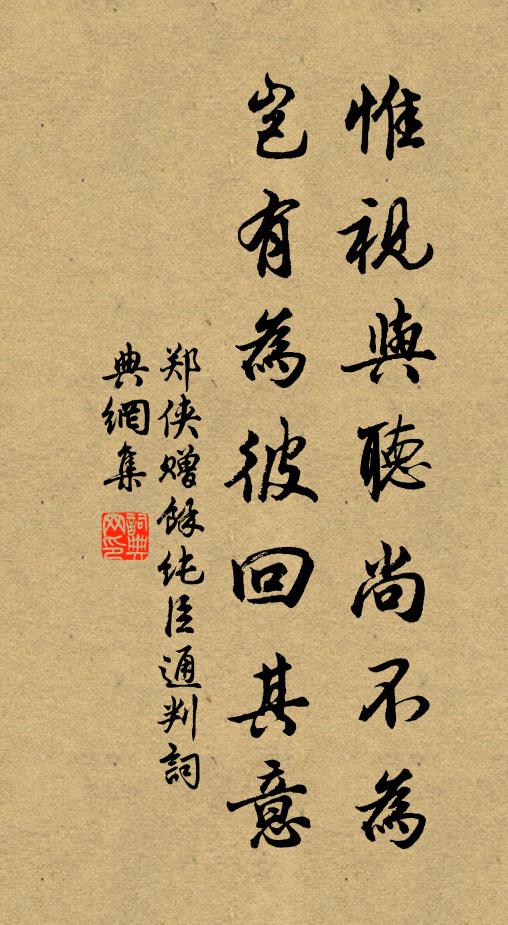 惟視與聽尚不為
豈有為彼回其意
郑侠赠餘纯臣通判詞
典網集
詞典网印